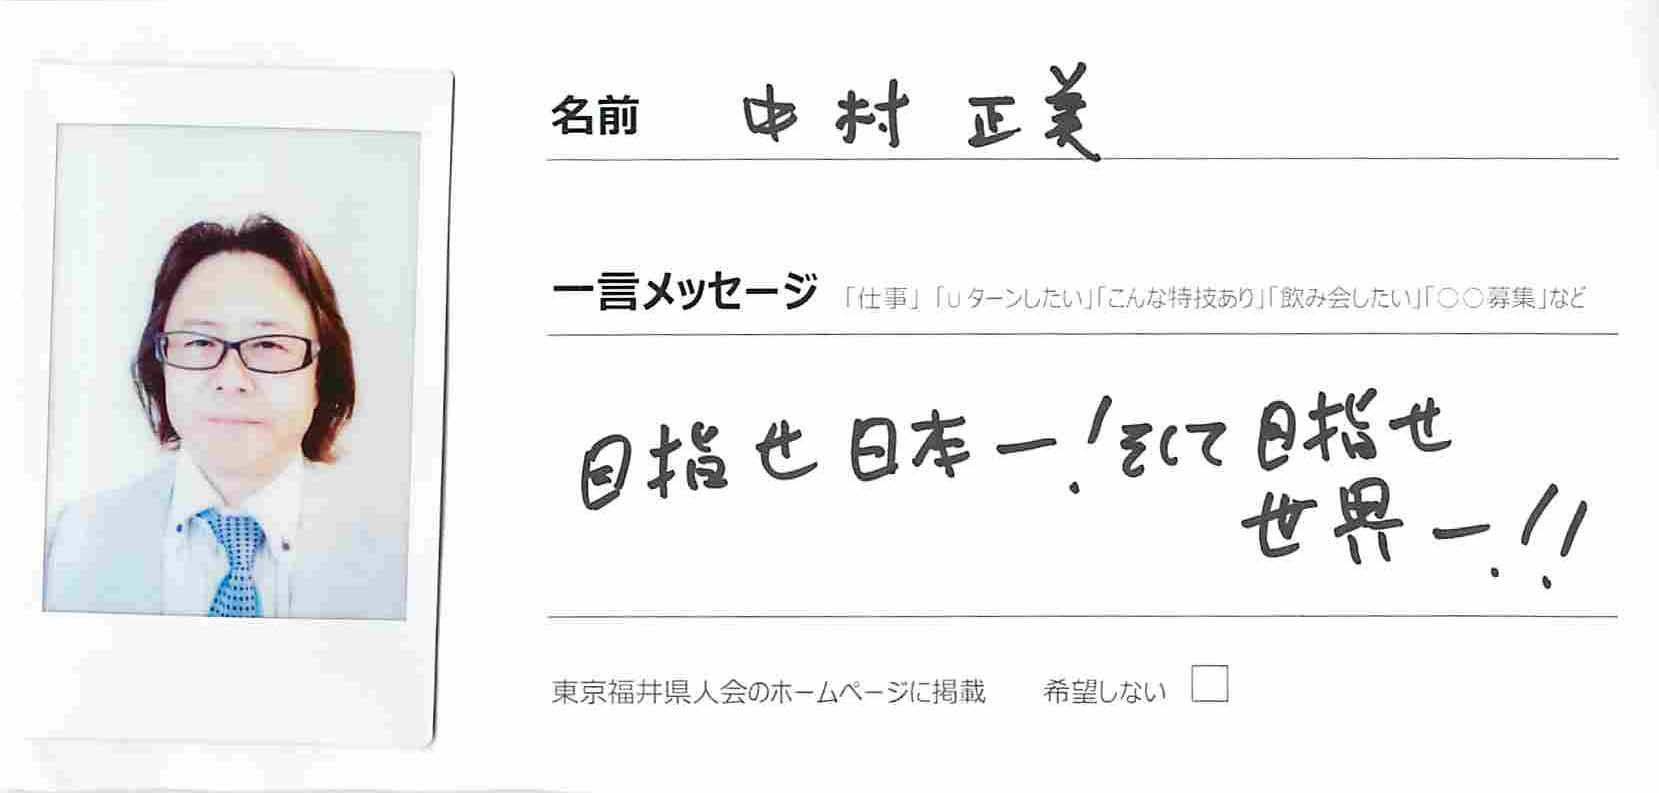 名前 中村 正美
一言メッセージ 「仕事」「Uターンしたい」「こんな特技あり」「飲み会したい」「○○募集」など
目指せ日本一!そして目指せ
世界一!!
東京福井県人会のホームページに掲載 希望しない □